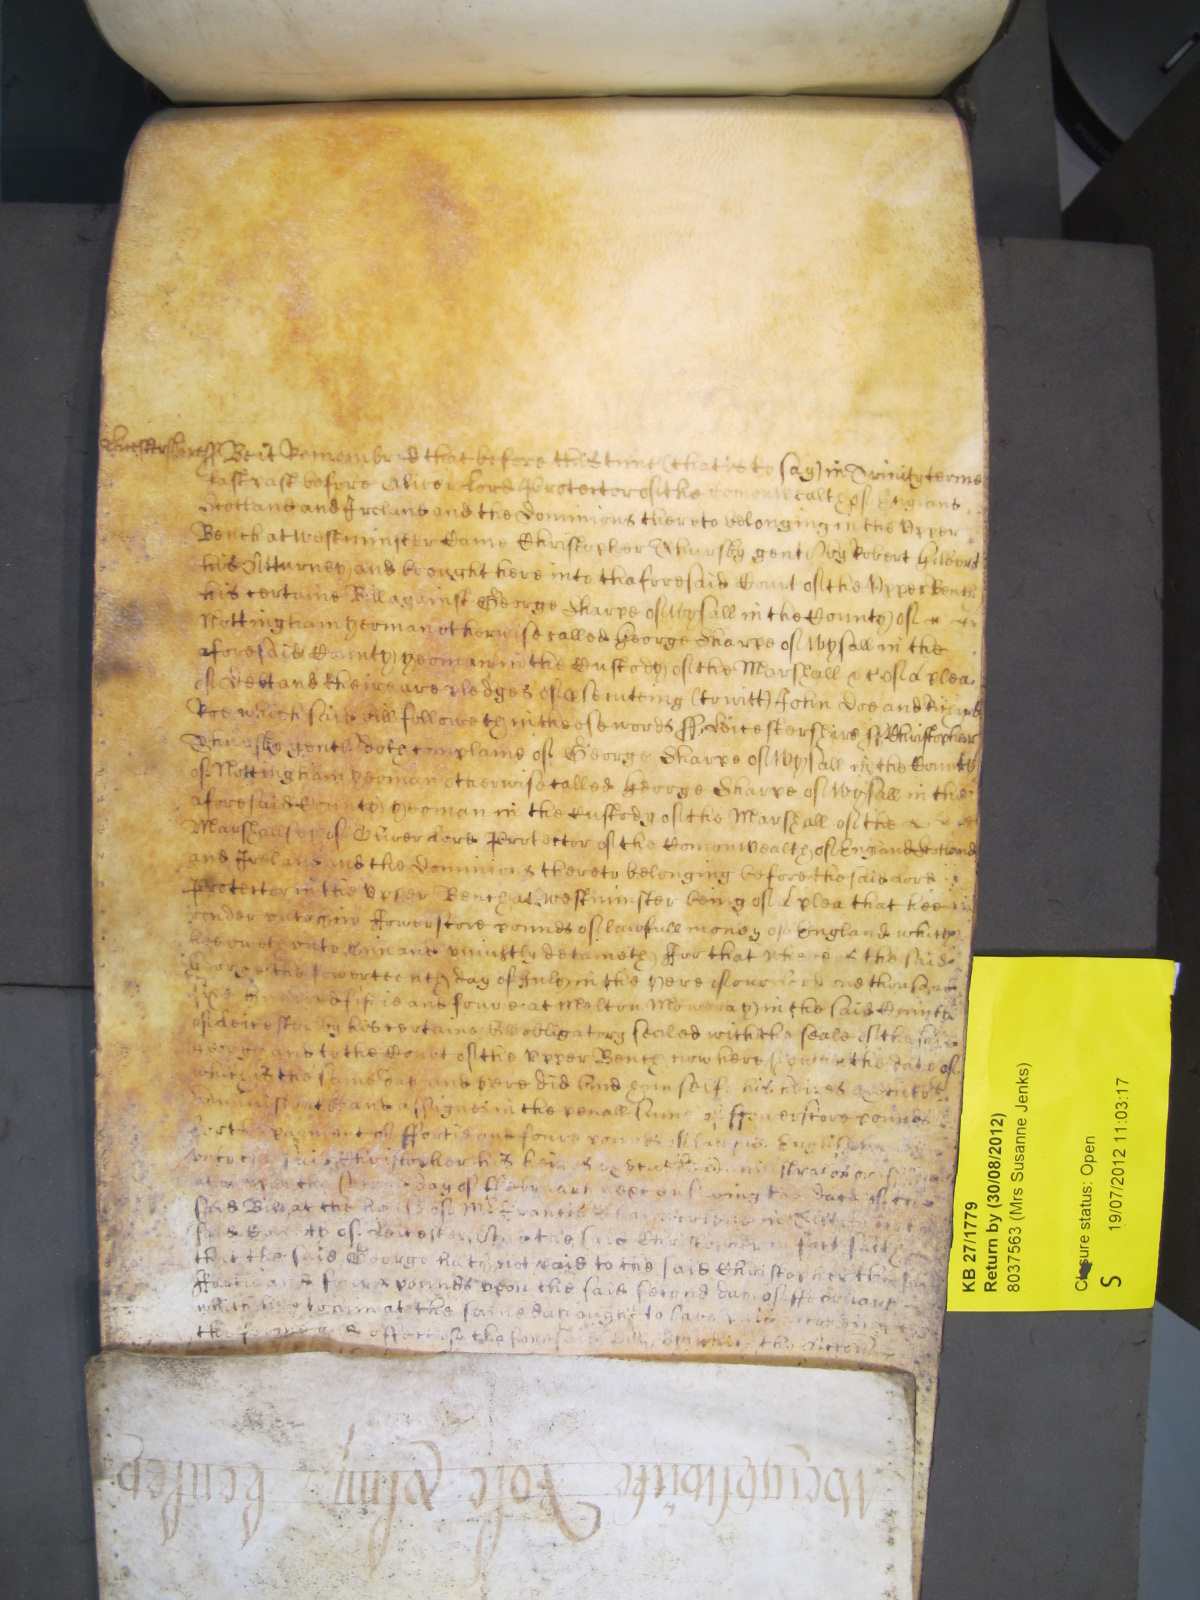 Leicestershire ss Be it Remembred that before this time (that is to say) in Trinity terme
last past before Oliver Lord Protector of the Comonwealth of England
Scotland and Ireland and the Dominions thereto belonging in the Upper
Bench at Westminster Came Christopher Thursby gent by Robert
his Atturney and brought here into thaforesaid Court of the Upper Bench
his certaine Bill against George Sharpe of Wysall in the County of
Nottingham yeoman otherwise called George Sharpe of Wysall in the
aforesaid County yeoman in the Custody of the Marshall &c of a plea
of Debt and there are pledges of prosecuteing (to witt) John Doe and Richard
Roe which said bill followeth in these words ss Leicestershire ss Christopher
Thursby gent doth complaine of George Sharpe of Wysall in the County
of Nottingham yeoman otherwise called George Sharpe of Wysall in the
aforesaid County yeoman in the Custody of the Marshall of the
Marshallsey of Oliver Lord Protector of the Comonwealth of England Scotland
and Ireland and the Dominions thereto belonging before the said Lord
Protector in the Upper Bench at Westminster being of a plea that hee
render unto him fowerscore pounds of lawfull money of England which
hee oweth unto him and uniustly detaineth For that whereas the said
George the fowerteenth day of July in the yere of our Lord one thousand
six hundred fiftie and foure at Melton Mowbray in the said County
of Leicester by his certaine bill obligatory sealed with the seale of the said
George and to the Court of the Upper Bench now here shewen the date of
which is the same day and yere did bind himself his heires executors
administrators and assignes in the penall sume of ffowerscore pounds
for the payment of ffortie and foure pounds of lawfull English
unto the said Christopher his heires executors administrators
upon the second day of February next ensuing the date of the
said Bill at the house of Mr Francis in
said County of Leicester And the said Christopher in fact saith
that the said George hath not paid to the said Christopher the said
ffortie and foure pounds upon the said second day of February
which hee to him at the same day ought to have paid according to
the forme and effect of thaforesaid bill by which the Action
KB 27/1779
Return by (30/08/2012)
8037563 (Mrs Susanne Jenks)
Closure status: Open
S 19/07/2012 11:03:17